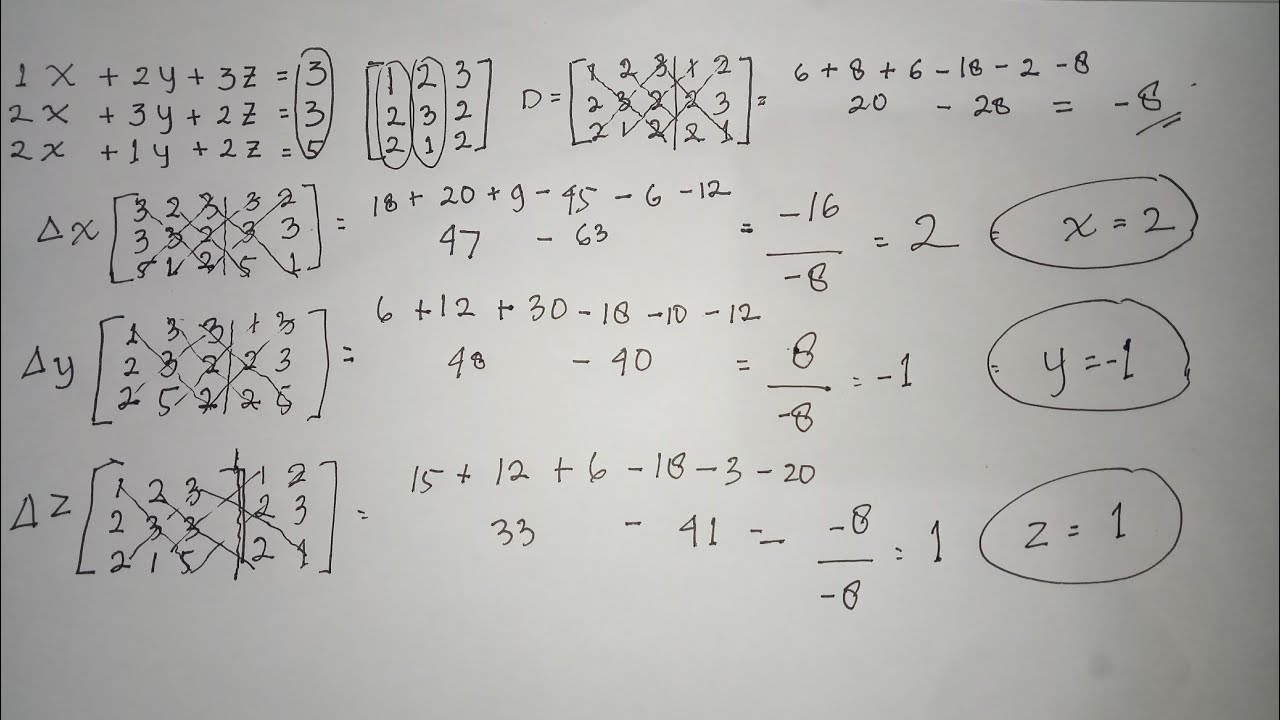 1x + 2y + 3z = 3
2x + 3y + 2z = 3
2x + 1y + 2z = 5
[1 2 3
2 3 2
2 1 2]
D = [1 2 3 | 1 2
2 3 2 | 2 3
2 1 2 | 2 1] =
6 + 8 + 6 - 18 - 2 - 8
20 - 28 = -8
Δx [3 2 3 | 3 2
3 3 2 | 3 3
5 1 2 | 5 1] =
18 + 20 + 9 - 45 - 6 - 12
47 - 63 = -16 / -8 = 2
x = 2
Δy [1 3 3 | 1 3
2 3 2 | 2 3
2 5 2 | 2 5] =
6 + 12 + 30 - 18 - 10 - 12
48 - 40 = 8 / -8 = -1
y = -1
Δz [1 2 3 | 1 2
2 3 3 | 2 3
2 1 5 | 2 1] =
15 + 12 + 6 - 18 - 3 - 20
33 - 41 = -8 / -8 = 1
z = 1